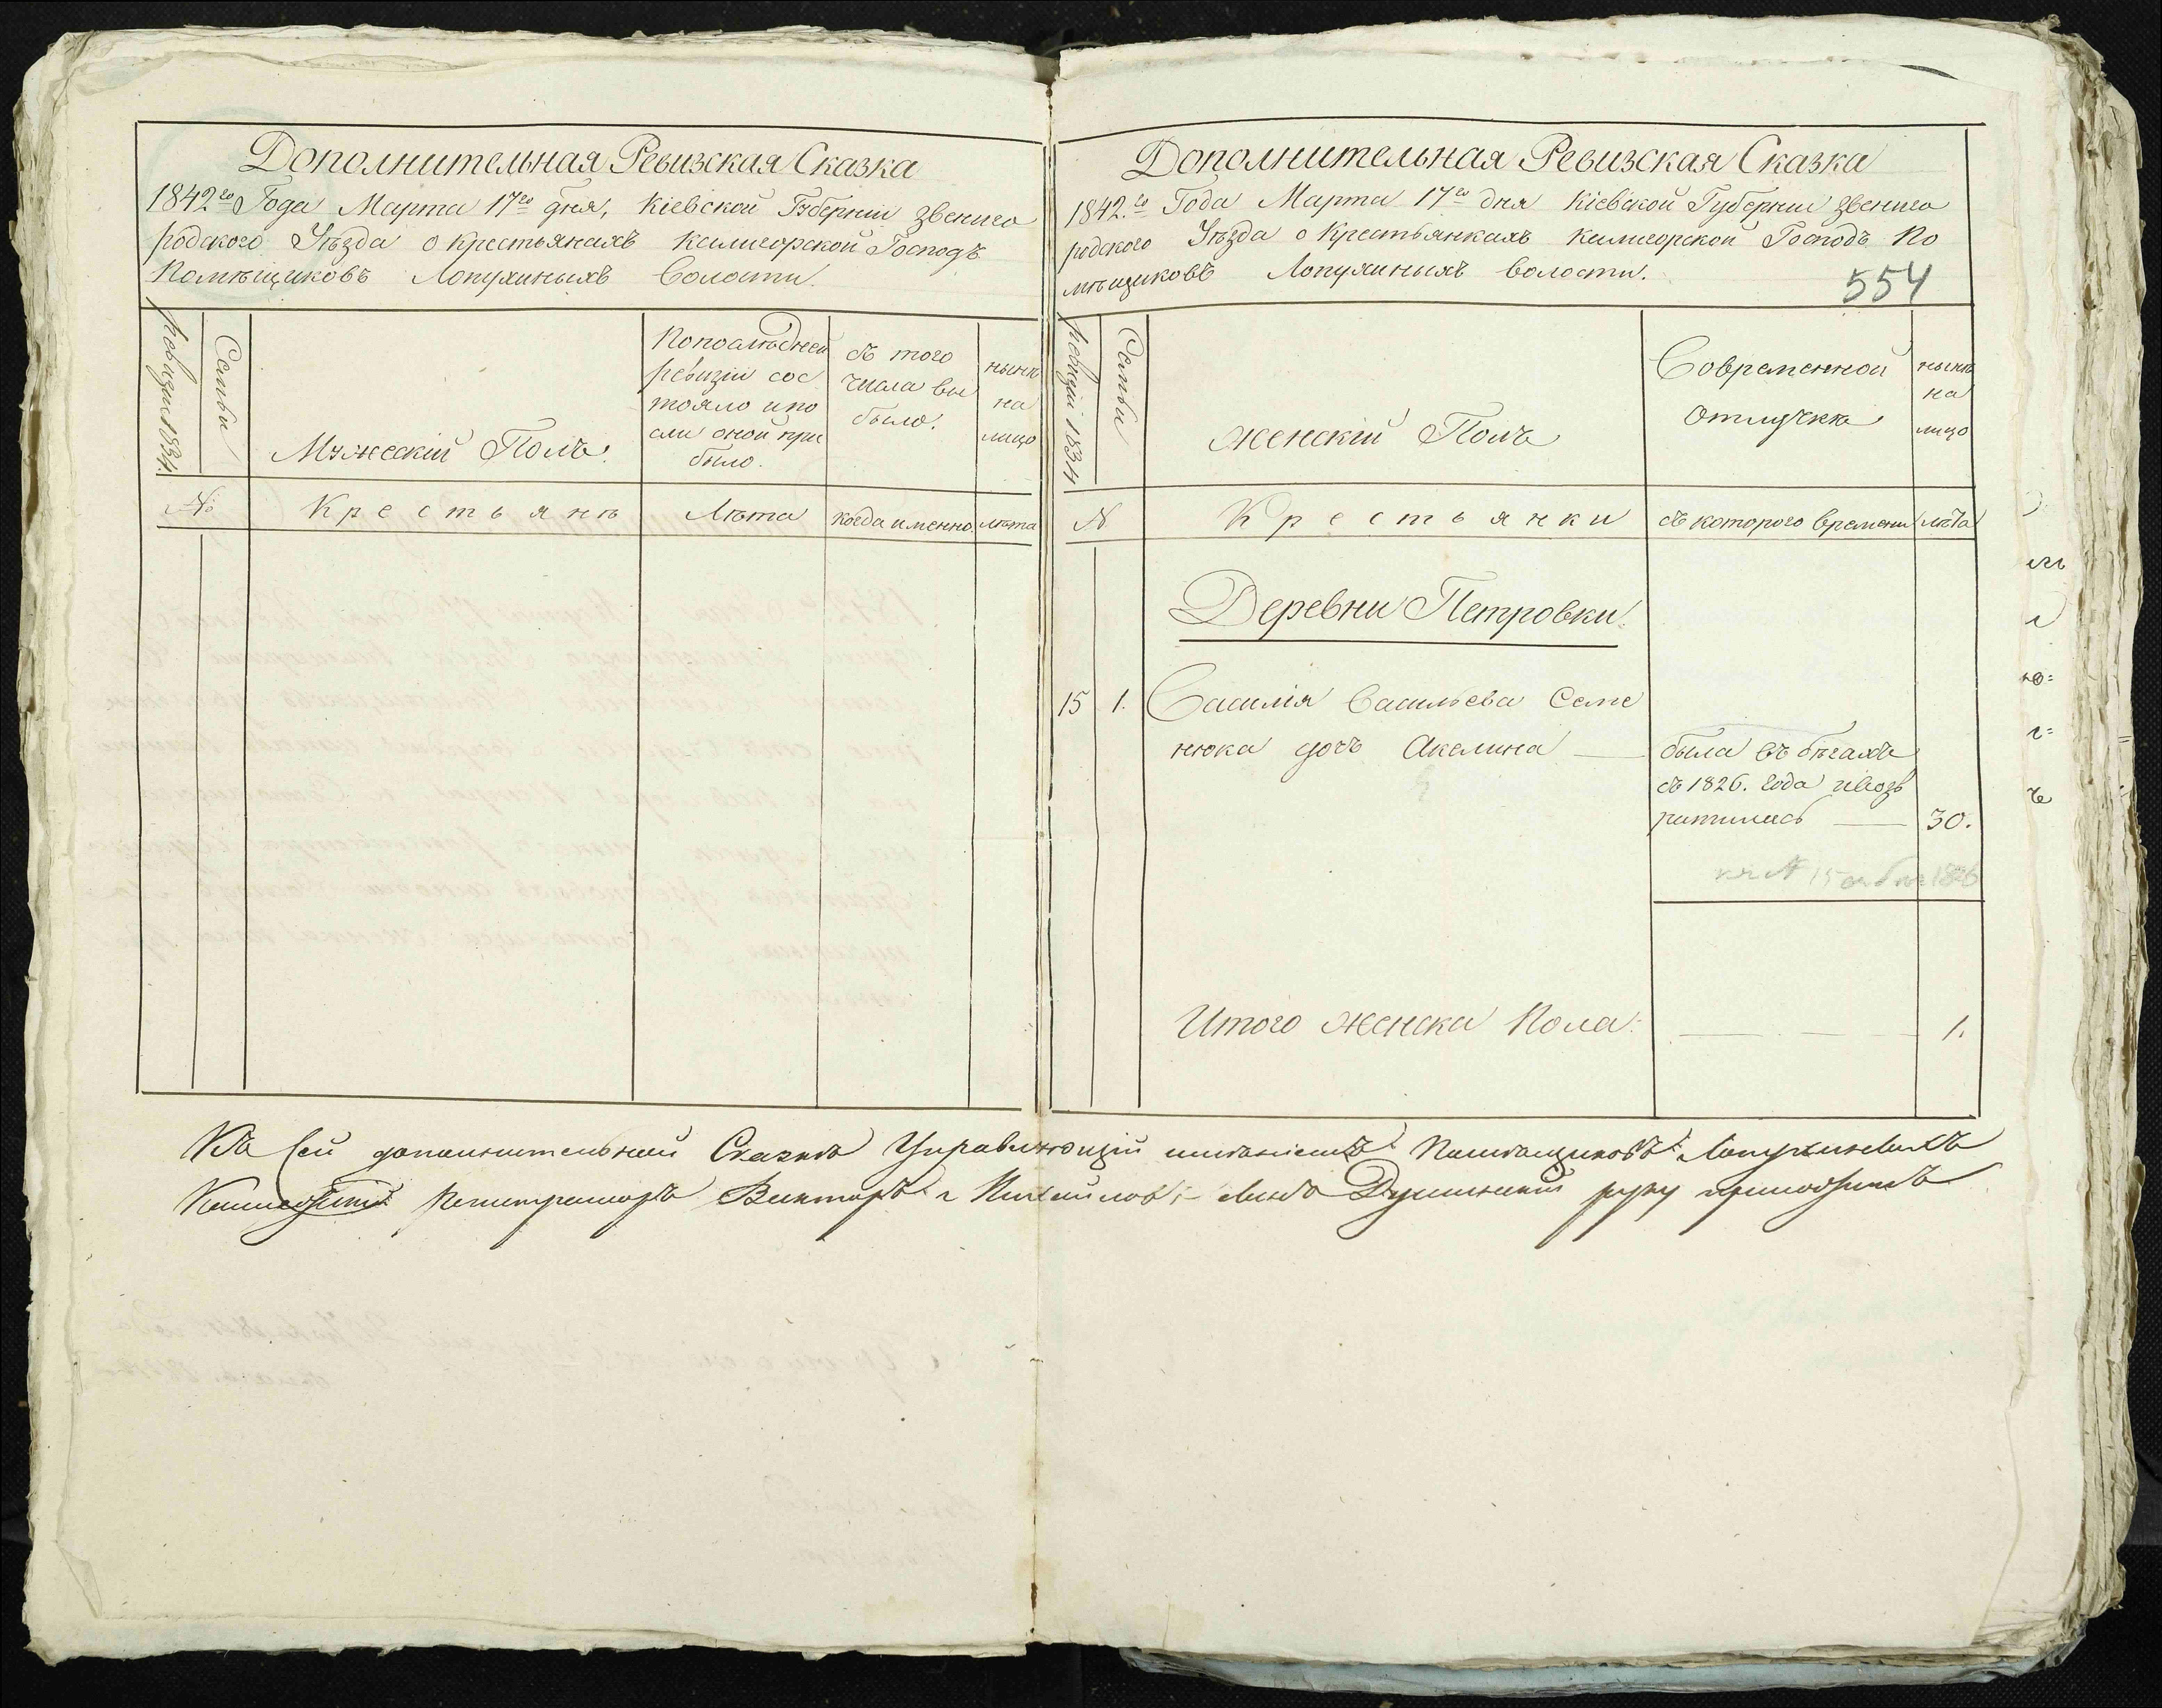 Дополнительная Ревизская Сказка
1842го Года Марта 17го дня, Кіевской Губерніи звениго
родского Уѣзда о крестьянахъ Калигорской Господъ
Помѣщиковъ Лопухиныхъ Волости.
Ревизіи 1834.
Семьи
Мужескій Полъ.
Попослѣдней
ревизіи сос
тояло ипо
сли оной при
было.
съ того
числа вы
было.
нынѣ
на
лицо
№
Крестьянѣ
Лѣта
когда именно
лѣта
Дополнительная Ревизская Сказка
1842.го Года Марта 17го дня Кіевской Губерніи Звениго
родского Уѣзда о Крестьянкахъ Калигорской Господъ По
мѣщиковъ Лопухиныхъ волости.
554
Ревизіи 1834
Семьи
Женскій Полъ
Современной
отлучкѣ
нынѣ
на
лицо
№
Крестьянки
съ которого времени
лѣта
Деревни Петровки.
15 1. Василія Васильева Семе
нюка дочь Акелина
была въ бѣгахъ
съ 1826. года ивоз
ратилась 30.
15
Итого женска Пола: 1.
Къ сей дополнительной Сказкѣ Управляющій имѣніемъ Помѣщиковъ Лопухиныхъ
Регистраторъ Викторъ Михайловъ сынъ руку приложилъ